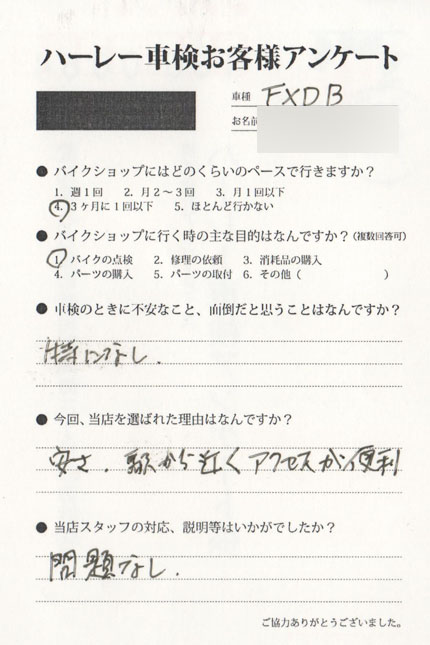 ハーレー車検お客様アンケート
車種 FXDB
お名前
● バイクショップにはどのくらいのペースで行きますか？
1. 週1回 2. 月2〜3回 3. 月1回以下
4. 3ヶ月に1回以下 5. ほとんど行かない
● バイクショップに行く時の主な目的はなんですか？（複数回答可）
1. バイクの点検 2. 修理の依頼 3. 消耗品の購入
4. パーツの購入 5. パーツの取付 6. その他（ ）
● 車検のときに不安なこと、面倒だと思うことはなんですか？
特になし.
● 今回、当店を選ばれた理由はなんですか？
安さ. 駅から近くアクセスが便利
● 当店スタッフの対応、説明等はいかがでしたか？
問題なし.
ご協力ありがとうございました。